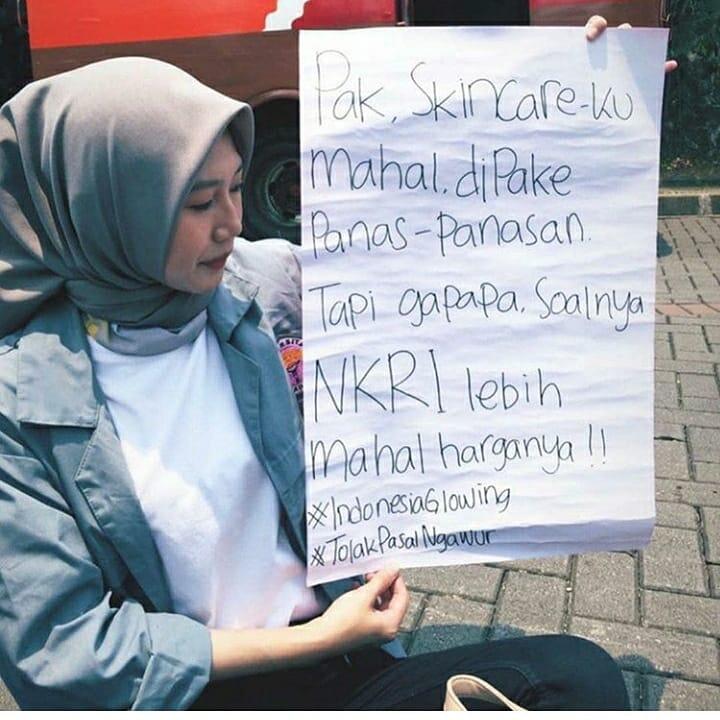 Pak, Skincare-ku
mahal. diPake
Panas-Panasan.
Tapi gapapa. Soalnya
NKRI lebih
mahal harganya !!
#IndonesiaGlowing
#TolakPasalNgawur